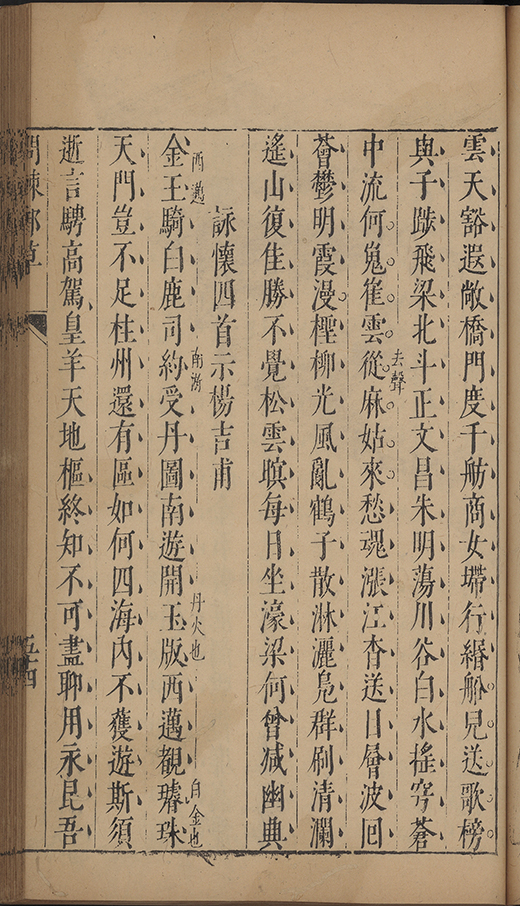 雲天豁遐敞橋門度千舫商女墆行緡船兒送歌榜
與子䠀飛梁北斗正文昌朱明蕩川谷白水搖穹蒼
中流何嵬嵬雲從去聲麻姑來愁魂漲江杳送日層波回
薈鬱明霞漫檉柳光風亂鶴子散淋灑鳧群刷清瀾
遙山復佳勝不覺松雲暝每日坐濠梁何曾減幽典
詠懷四首示楊吉甫
金王騎白鹿司約受丹圖南遊開玉版西邁觀璿珠
西邁 南游 丹火也 白金也
天門豈不足柱州還有區如何四海內不獲遊斯須
逝言騁高駕皇羊天地樞終知不可盡聊用永民吾
五十四